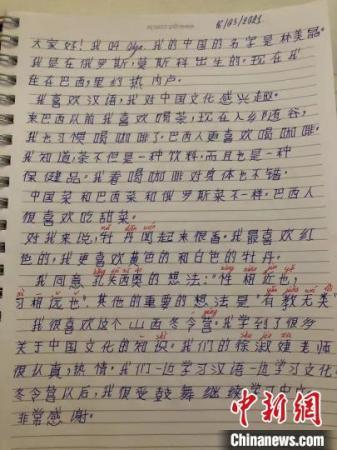 8/03/2021
大家好！我叫Olga。我的中国的名字是林美晶。
我是在俄罗斯，莫斯科出生的。现在我
住在巴西，里约热内卢。
我喜欢汉语，我对中国文化感兴趣。
来巴西以前我喜欢喝茶，现在入乡随俗，
我也习惯喝咖啡了。巴西人更喜欢喝咖啡。
我知道，茶不但是一种饮料，而且也是一种
保健品。我看喝咖啡对身体也不错。
中国菜和巴西菜和俄罗斯菜不一样。巴西人
很喜欢吃甜菜。
对我来说，牡丹闻起来很香。我最喜欢红
色的，我更喜欢黄色的和白色的牡丹。
我同意孔夫西奥的想法："性相近也，
习相远也"。其他的重要的想法是"有教无类"
我很喜欢这个山西冬令营。我学到了很多
关于中国文化的知识。我们的徐淑娃老师
很认真，热情。我们一边学习汉语一边学习文化。
冬令营以后，我很受鼓舞继续学习
非常感谢。
中新网
Chinanews.com